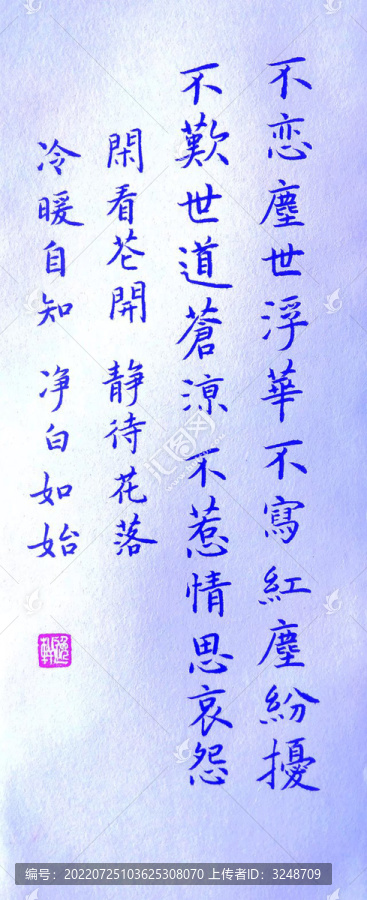 不恋塵世浮華 不寫紅塵紛擾
不歎世道蒼涼 不惹情思哀怨
閑看花開 静待花落
冷暖自知 净白如始
编号：20220725103625308070 上传者ID：3248709